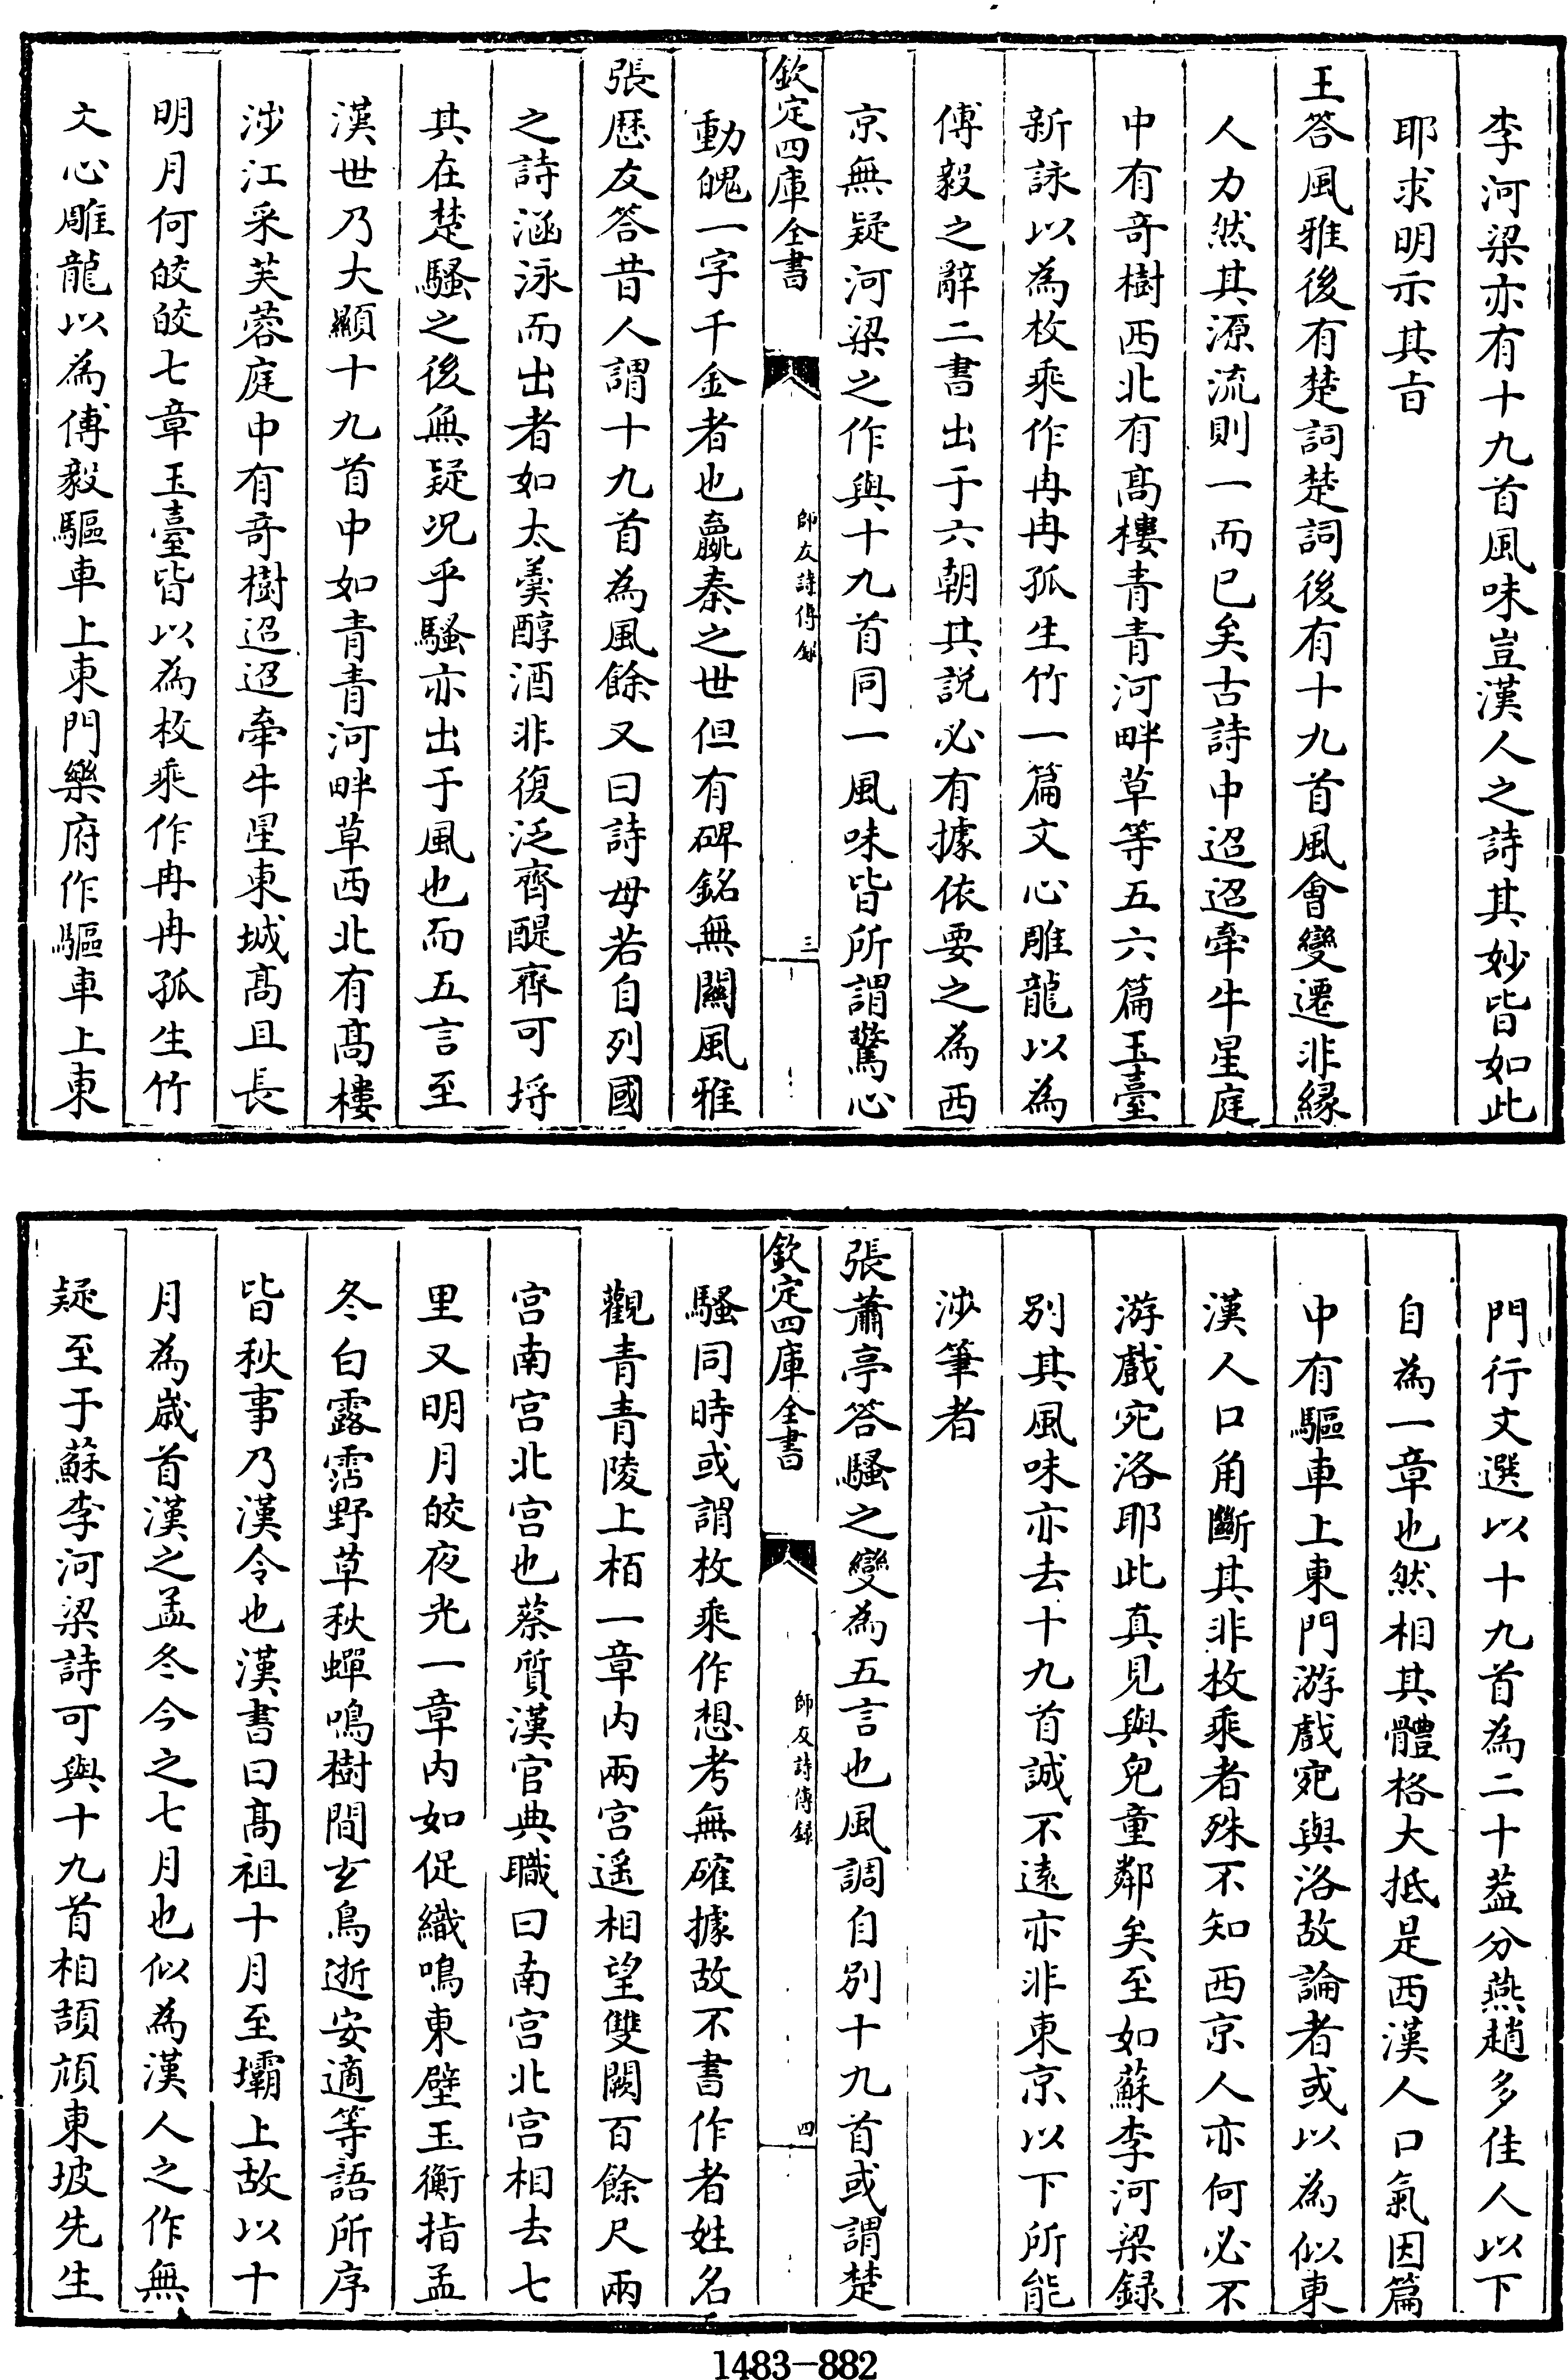 李河梁亦有十九首風味豈漢人之詩其妙皆如此
耶求明示其旨
王答風雅後有楚詞楚詞後有十九首風會變遷非緣
人力然其源流則一而已矣古詩中迢迢牽牛星庭
中有竒樹西北有髙樓青青河畔草等五六篇玉臺
新詠以為枚乘作冉冉孤生竹一篇文心雕龍以為
傅毅之辭二書出于六朝其説必有據依要之為西
京無疑河梁之作與十九首同一風味皆所謂驚心
欽定四庫全書
師友詩傳録
三
動魄一字千金者也嬴秦之世但有碑銘無關風雅
張歴友答昔人謂十九首為風餘又曰詩母若自列國
之詩涵泳而出者如太羹醇酒非復泛齊醍齊可埒
其在楚騷之後無疑况乎騷亦出于風也而五言至
漢世乃大顯十九首中如青青河畔草西北有髙樓
涉江采芙蓉庭中有竒樹迢迢牽牛星東城髙且長
明月何皎皎七章玉臺皆以為枚乘作冉冉孤生竹
文心雕龍以為傅毅驅車上東門樂府作驅車上東
門行文選以十九首為二十葢分燕趙多佳人以下
自為一章也然相其體格大抵是西漢人口氣因篇
中有驅車上東門游戲宛與洛故論者或以為似東
漢人口角斷其非枚乘者殊不知西京人亦何必不
游戲宛洛耶此真見與兒童鄰矣至如蘇李河梁録
别其風味亦去十九首誠不逺亦非東京以下所能
涉筆者
張蕭亭答騷之變為五言也風調自别十九首或謂楚
欽定四庫全書
師友詩傳録
四
騷同時或謂枚乘作想考無確據故不書作者姓名
觀青青陵上栢一章内兩宫遥相望雙闕百餘尺兩
宫南宫北宫也蔡質漢官典職曰南宫北宫相去七
里又明月皎夜光一章内如促織鳴東壁玉衡指孟
冬白露霑野草秋蟬鳴樹間玄鳥逝安適等語所序
皆秋事乃漢令也漢書曰髙祖十月至壩上故以十
月為嵗首漢之孟冬今之七月也似為漢人之作無
疑至于蘇李河梁詩可與十九首相頡頏東坡先生
1483-882